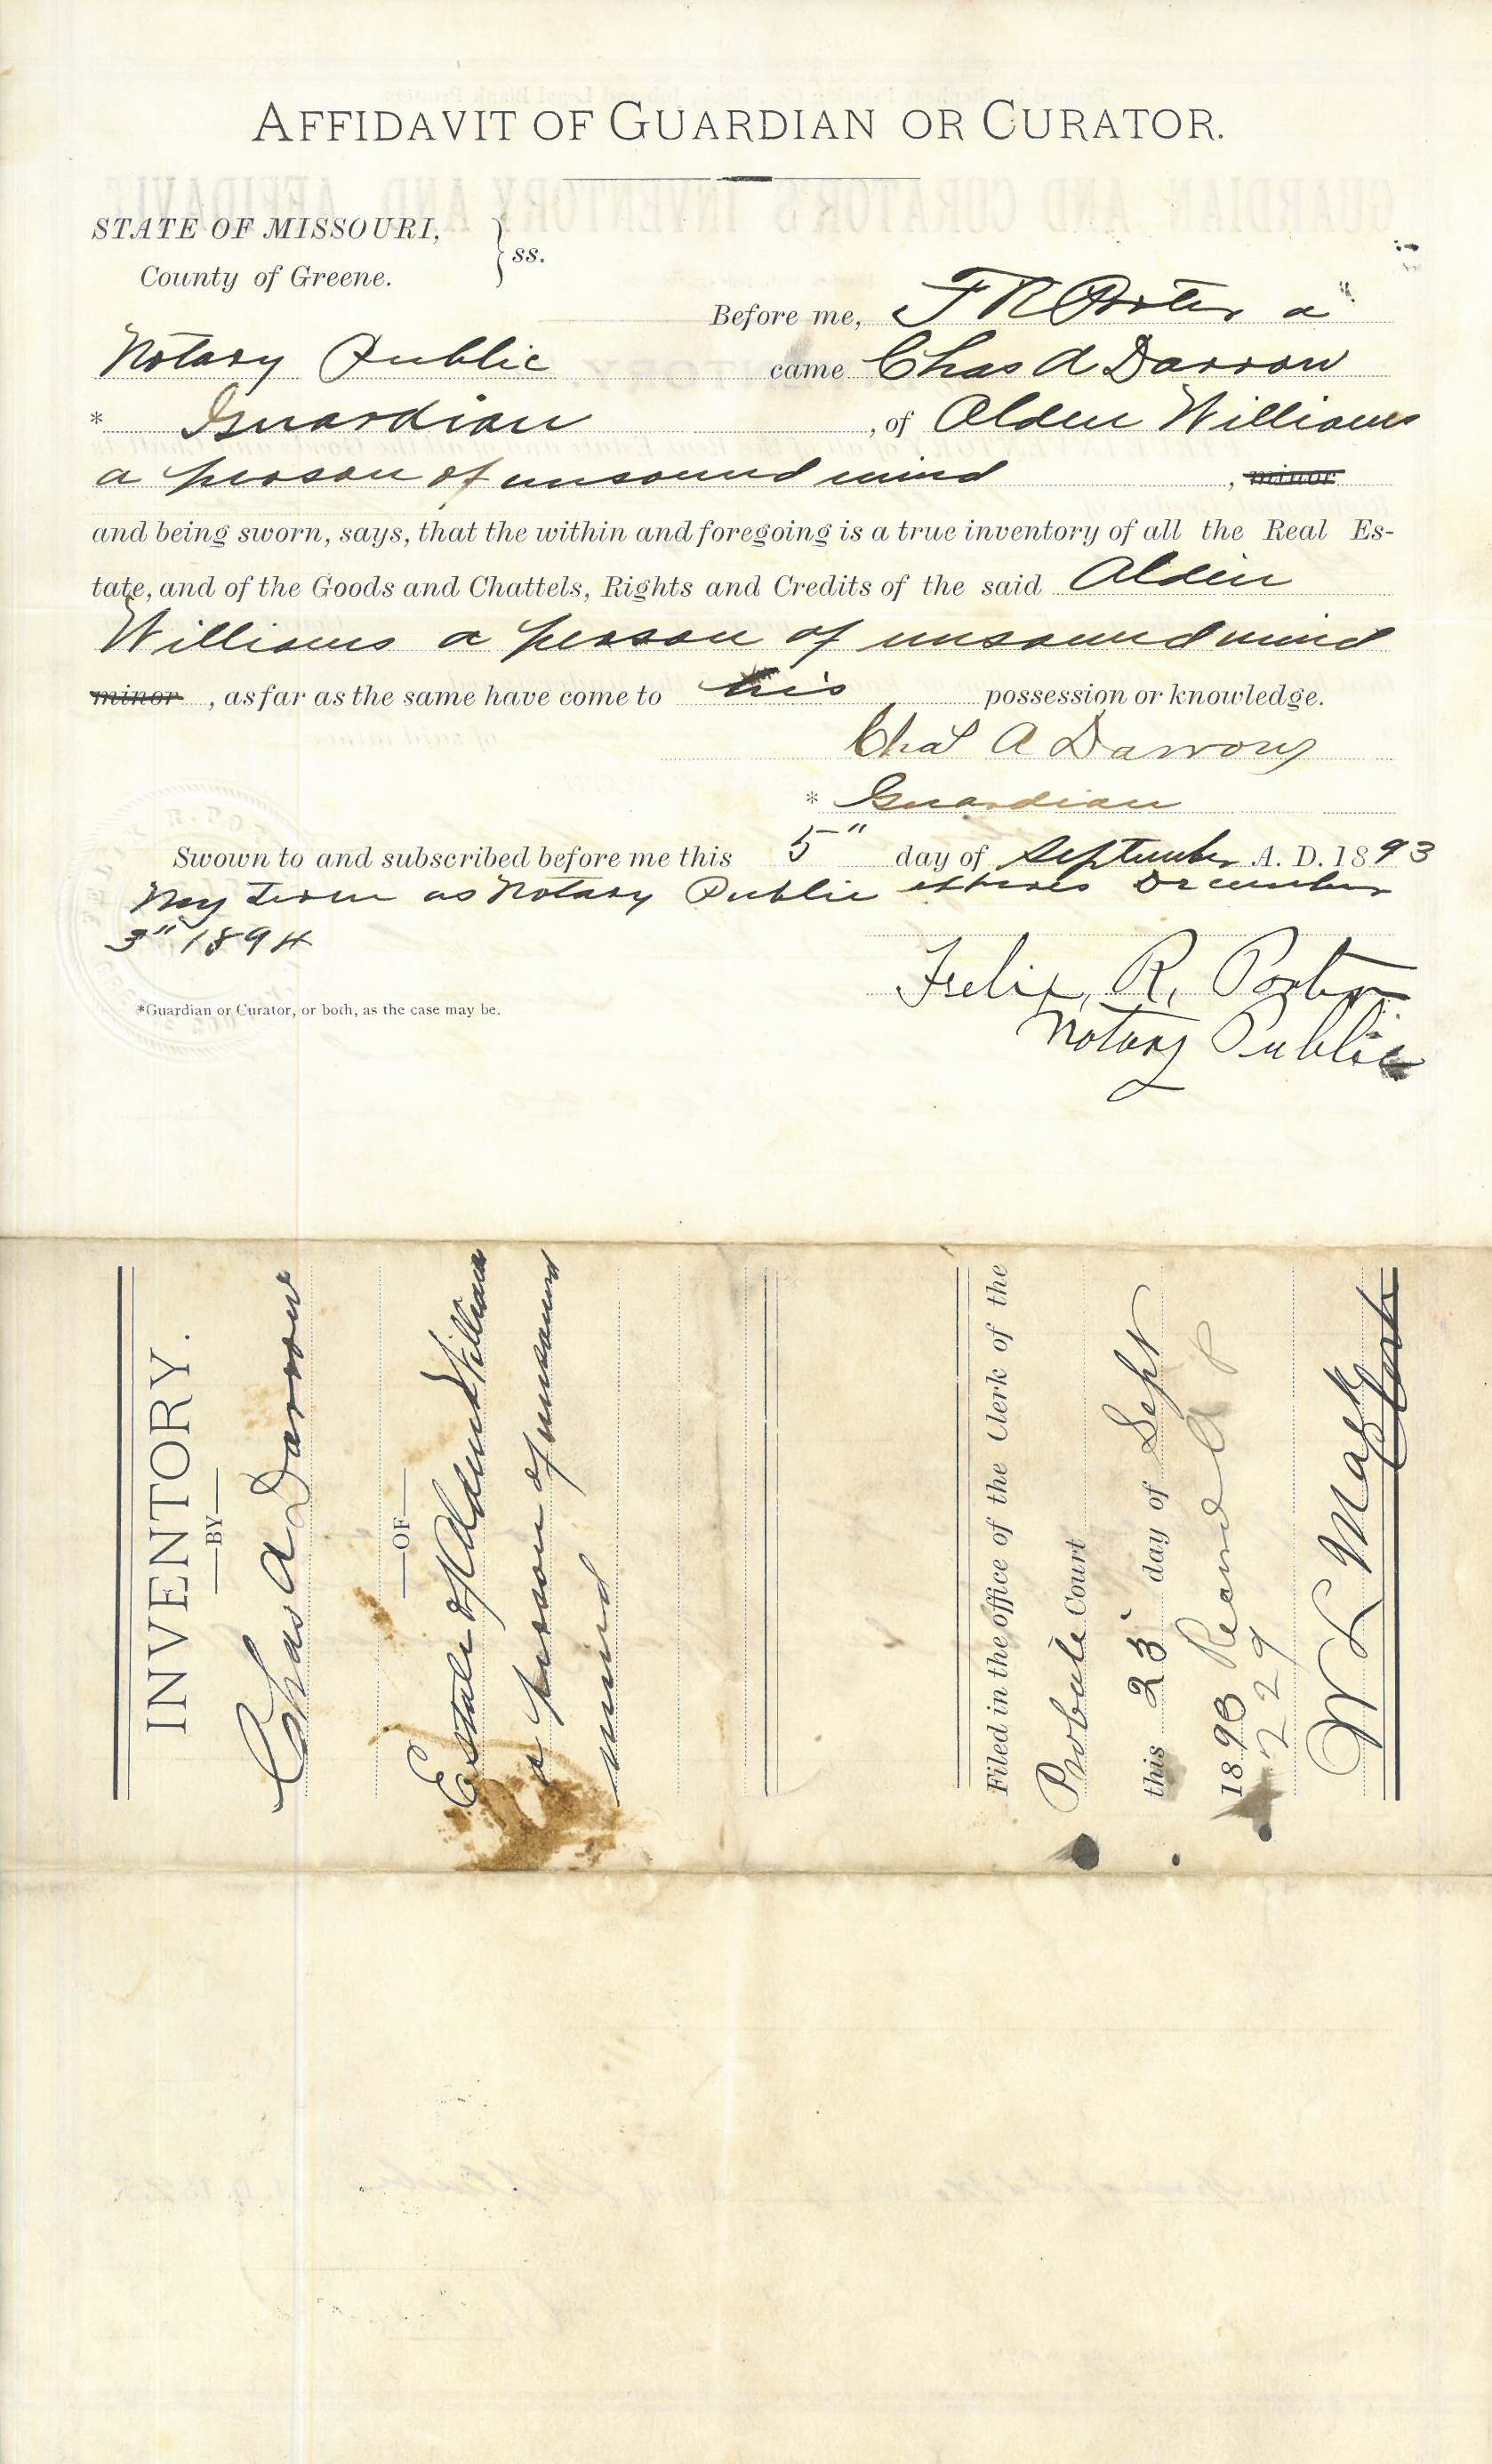 AFFIDAVIT OF GUARDIAN OR CURATOR.
STATE OF MISSOURI,
County of Greene. } ss.
Before me, F R Porter a
Notary Public came Chas A Darrow
* Guardian , of Alden Williams
a person of unsound mind , minor
and being sworn, says, that the within and foregoing is a true inventory of all the Real Es-
tate, and of the Goods and Chattels, Rights and Credits of the said Alden
Williams a person of unsound mind
minor , as far as the same have come to his possession or knowledge.
Chas A Darrow
* Guardian
Swown to and subscribed before me this 5" day of September A. D. 1893
My term as Notary Public expires December
3" 1894
Felix R. Porter
Notary Public
*Guardian or Curator, or both, as the case may be.
INVENTORY.
—BY—
Chas A Darrow
—OF—
Estate of Alden Williams
a person of unsound
mind
Filed in the office of the Clerk of the
Probate Court
this 23 day of Sept
1893 Recond
229
W L